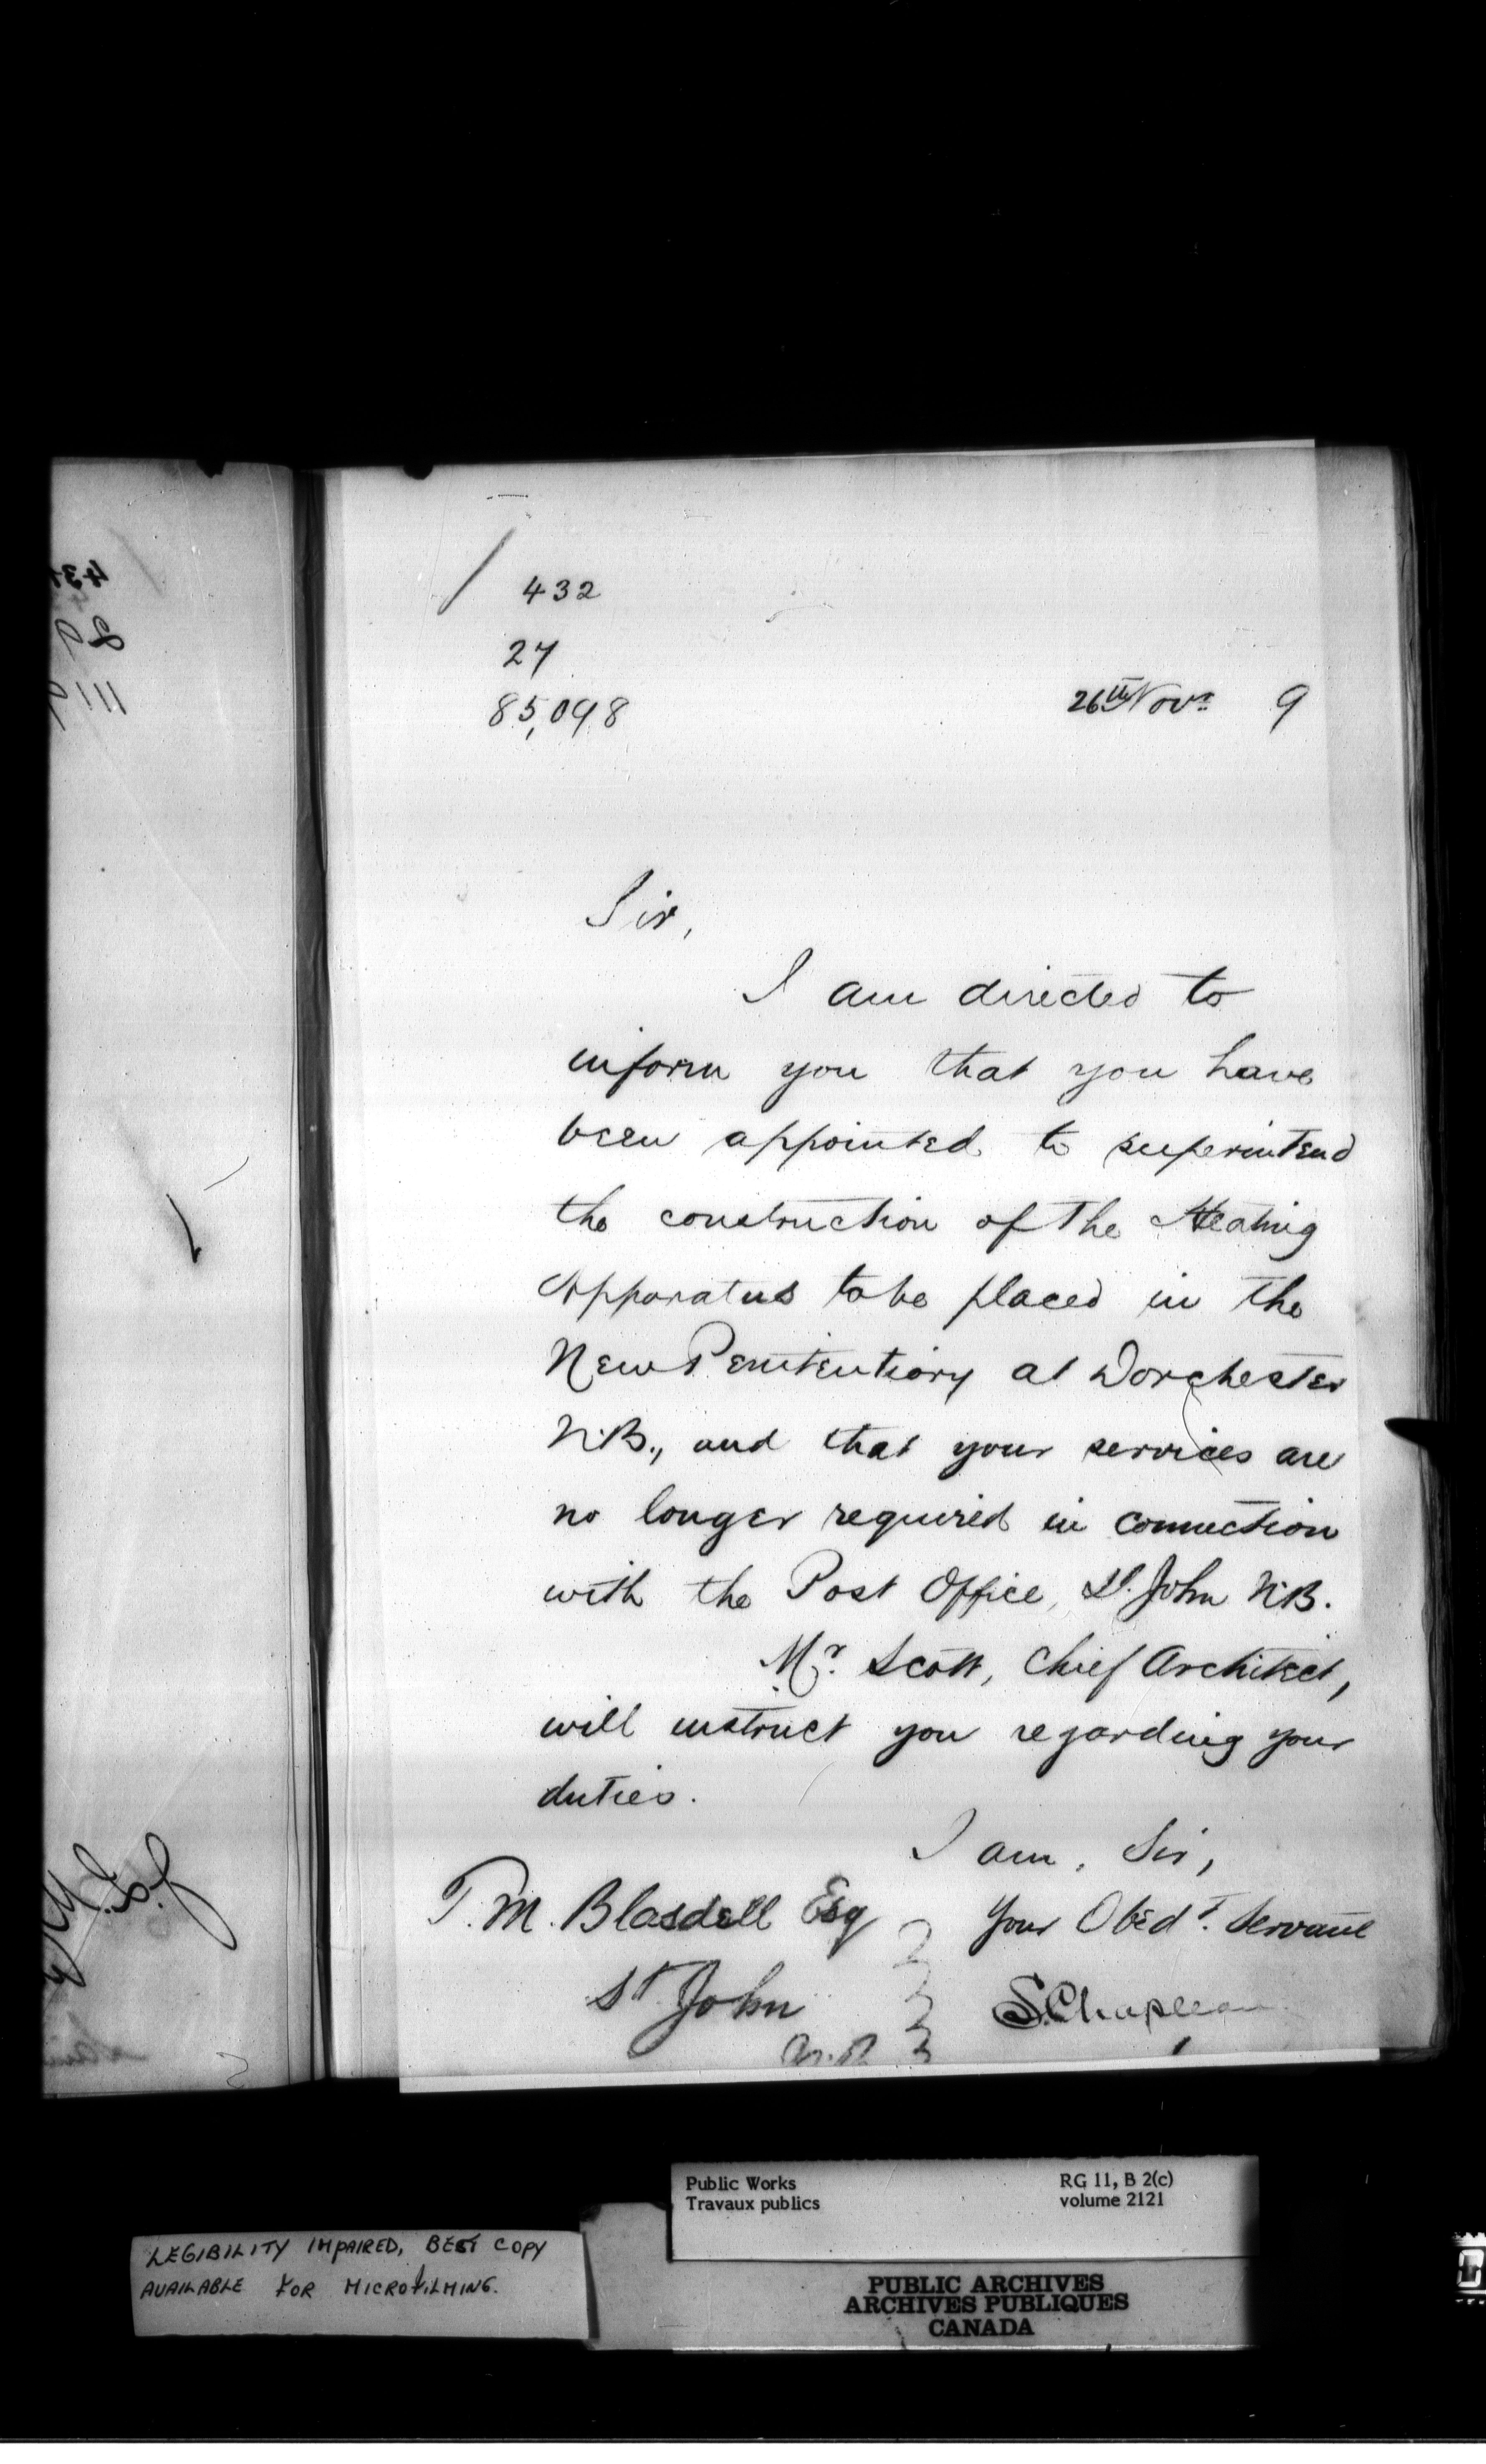 432
27
85,098
26th Novr. 9
Sir,
I am directed to
inform you that you have
been appointed to superintend
the construction of the Heating
Apparatus to be placed in the
New Penitentiary at Dorchester
N.B., and that your services are
no longer required in connection
with the Post Office, St. John N.B.
Mr. Scott, Chief Architect,
will instruct you regarding your
duties.
I am, Sir,
Your Obedt. Servant
S. Chapleau
T. M. Blasdell Esq
St John
N.B.
Public Works
Travaux publics
RG 11, B 2(c)
volume 2121
LEGIBILITY IMPAIRED, BEST COPY
AVAILABLE FOR MICROFILMING.
PUBLIC ARCHIVES
ARCHIVES PUBLIQUES
CANADA